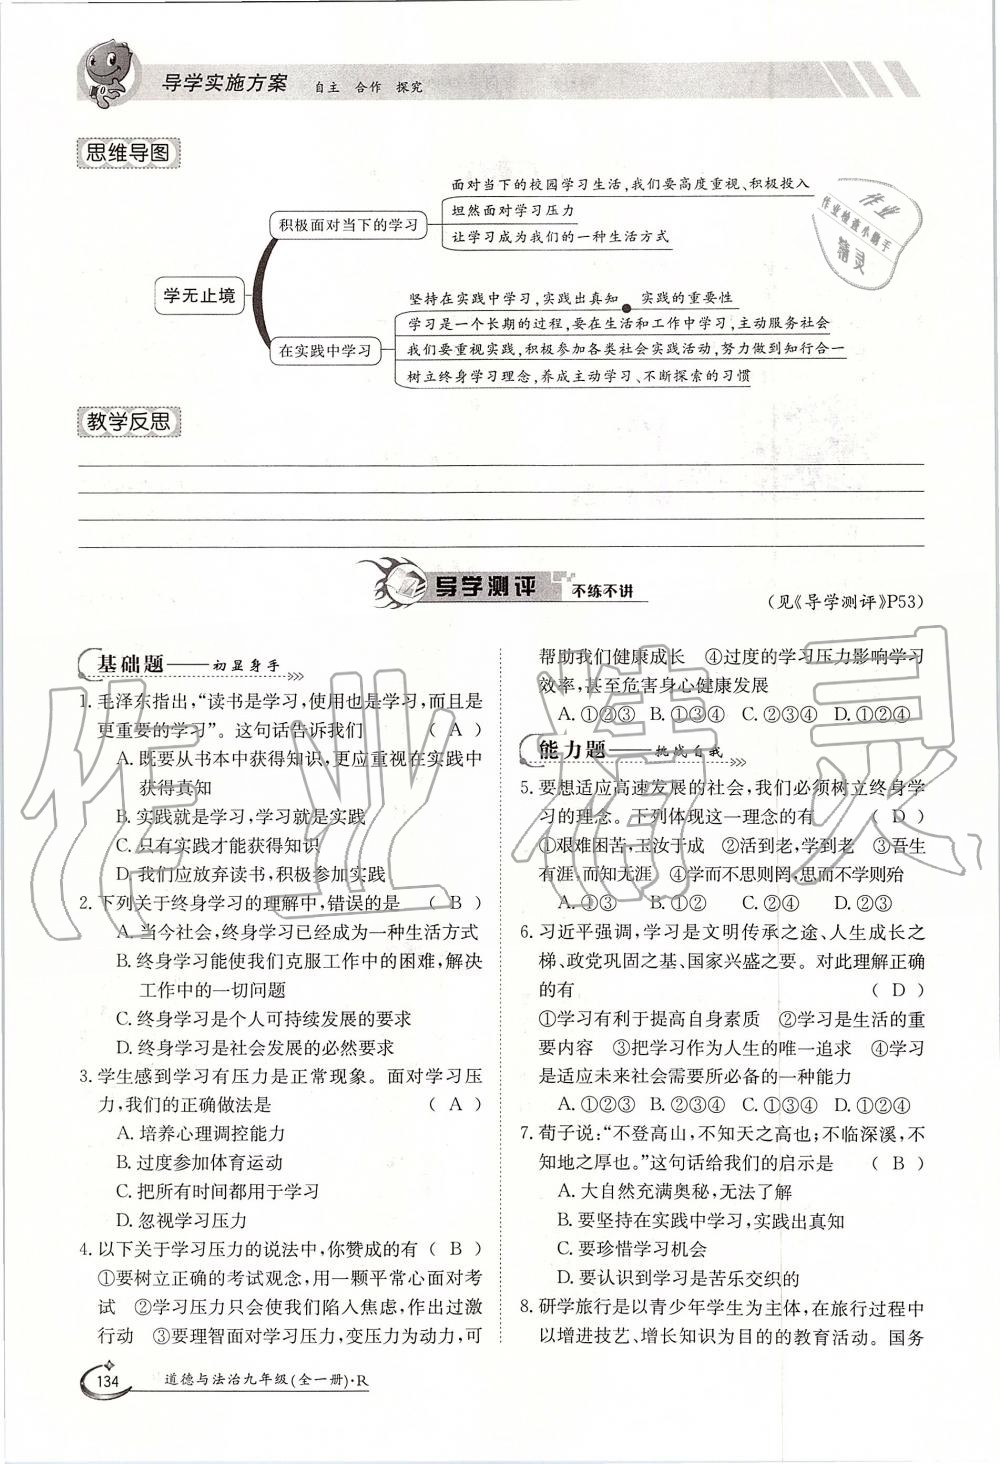 导学实施方案 自主 合作 探究
思维导图
学无止境
积极面对当下的学习
面对当下的校园学习生活,我们要高度重视、积极投入
坦然面对学习压力
让学习成为我们的一种生活方式
在实践中学习
坚持在实践中学习,实践出真知●实践的重要性
学习是一个长期的过程,要在生活和工作中学习,主动服务社会
我们要重视实践,积极参加各类社会实践活动,努力做到知行合一
树立终身学习理念,养成主动学习、不断探索的习惯
作业
作业检查小助手
精灵
教学反思
导学测评 不练不讲
(见《导学测评》P53)
基础题——初显身手
1. 毛泽东指出,“读书是学习,使用也是学习,而且是
更重要的学习”。这句话告诉我们 ( A )
A. 既要从书本中获得知识,更应重视在实践中
获得真知
B. 实践就是学习,学习就是实践
C. 只有实践才能获得知识
D. 我们应放弃读书,积极参加实践
2. 下列关于终身学习的理解中,错误的是 ( B )
A. 当今社会,终身学习已经成为一种生活方式
B. 终身学习能使我们克服工作中的困难,解决
工作中的一切问题
C. 终身学习是个人可持续发展的要求
D. 终身学习是社会发展的必然要求
3. 学生感到学习有压力是正常现象。面对学习压
力,我们的正确做法是 ( A )
A. 培养心理调控能力
B. 过度参加体育运动
C. 把所有时间都用于学习
D. 忽视学习压力
4. 以下关于学习压力的说法中,你赞成的有 ( B )
①要树立正确的考试观念,用一颗平常心面对考
试 ②学习压力只会使我们陷入焦虑,作出过激
行动 ③要理智面对学习压力,变压力为动力,可
帮助我们健康成长 ④过度的学习压力影响学习
效率,甚至危害身心健康发展
A. ①②③ B. ①③④ C. ②③④ D. ①②④
能力题——挑战自我
5. 要想适应高速发展的社会,我们必须树立终身学
习的理念。下列体现这一理念的有 ( D )
①艰难困苦,玉汝于成 ②活到老,学到老 ③吾生
有涯,而知无涯 ④学而不思则罔,思而不学则殆
A. ①③ B. ①② C. ②④ D. ②③
6. 习近平强调,学习是文明传承之途、人生成长之
梯、政党巩固之基、国家兴盛之要。对此理解正确
的有 ( D )
①学习有利于提高自身素质 ②学习是生活的重
要内容 ③把学习作为人生的唯一追求 ④学习
是适应未来社会需要所必备的一种能力
A. ①②③ B. ②③④ C. ①③④ D. ①②④
7. 荀子说:“不登高山,不知天之高也;不临深溪,不
知地之厚也。”这句话给我们的启示是 ( B )
A. 大自然充满奥秘,无法了解
B. 要坚持在实践中学习,实践出真知
C. 要珍惜学习机会
D. 要认识到学习是苦乐交织的
8. 研学旅行是以青少年学生为主体,在旅行过程中
以增进技艺、增长知识为目的的教育活动。国务
作业精灵
134 道德与法治九年级(全一册)·R